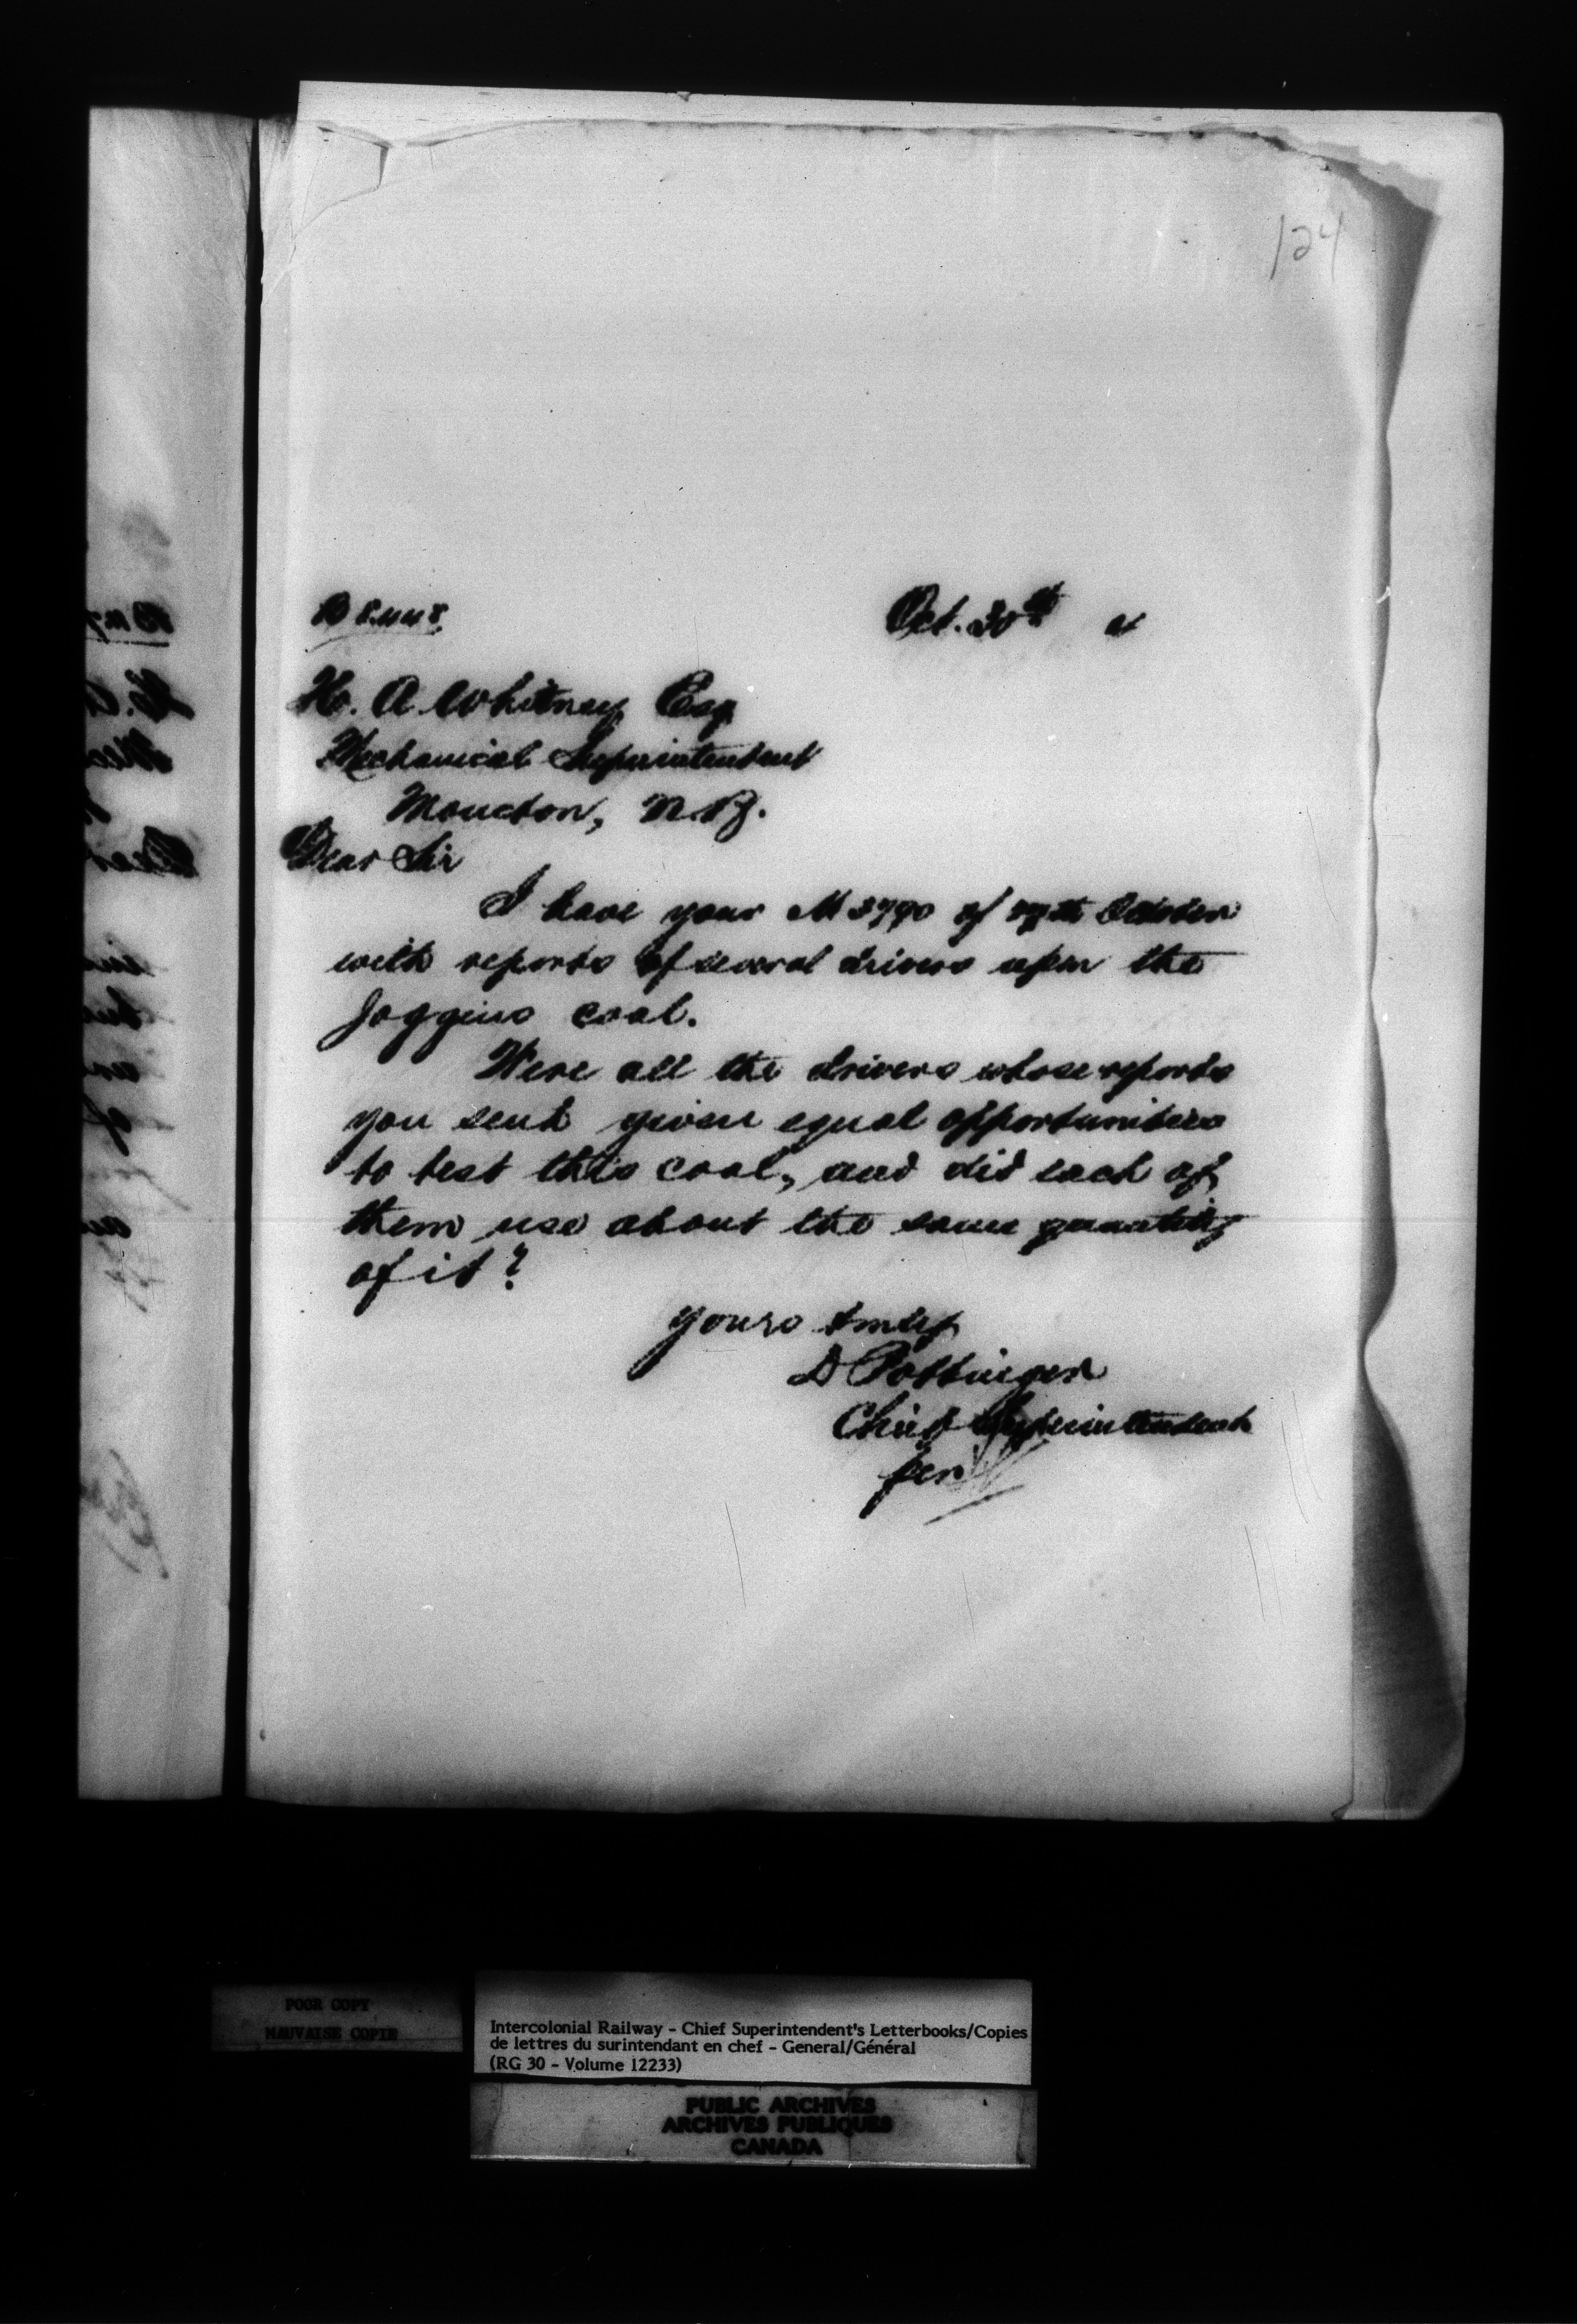 124
Oct. 30th
H. A. Whitney Esq
Mechanical Superintendent
Moncton, N.B.
Dear Sir
I have your M 3790 of October
with reports of several drivers upon the
Joggins coal.
Were all the drivers whose reports
you sent given equal opportunities
to test this coal, and did each of
them use about the same quantity
of it?
Yours truly
D Pottinger
Chief Superintendent
per
POOR COPY
MAUVAISE COPIE
Intercolonial Railway - Chief Superintendent's Letterbooks/Copies
de lettres du surintendant en chef - General/Général
(RG 30 - Volume 12233)
PUBLIC ARCHIVES
ARCHIVES PUBLIQUES
CANADA